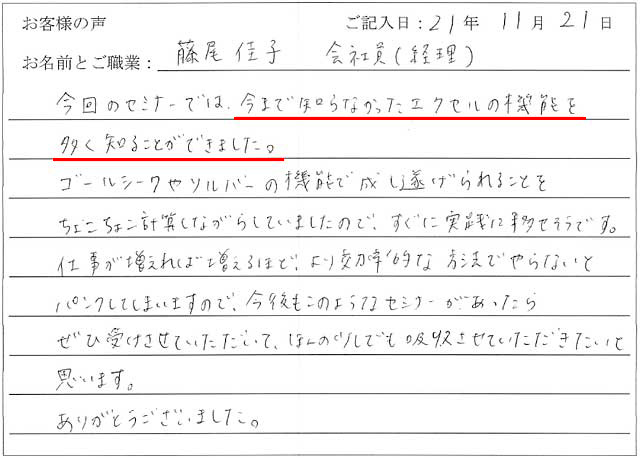 お客様の声 ご記入日：21年 11月 21日
お名前とご職業： 藤尾 佳子 会社員（経理）
今回のセミナーでは、今まで知らなかったエクセルの機能を
多く知ることができました。
ゴールシークやソルバーの機能で成し遂げられることを
ちょこちょこ計算しながらしていましたので、すぐに実践に移せそうです。
仕事が増えれば増えるほど、より効率的な方法でやらないと
パンクしてしまいますので、今後もこのようなセミナーがあったら
ぜひ受けさせていただいて、ほんの少しでも吸収させていただきたいと
思います。
ありがとうございました。